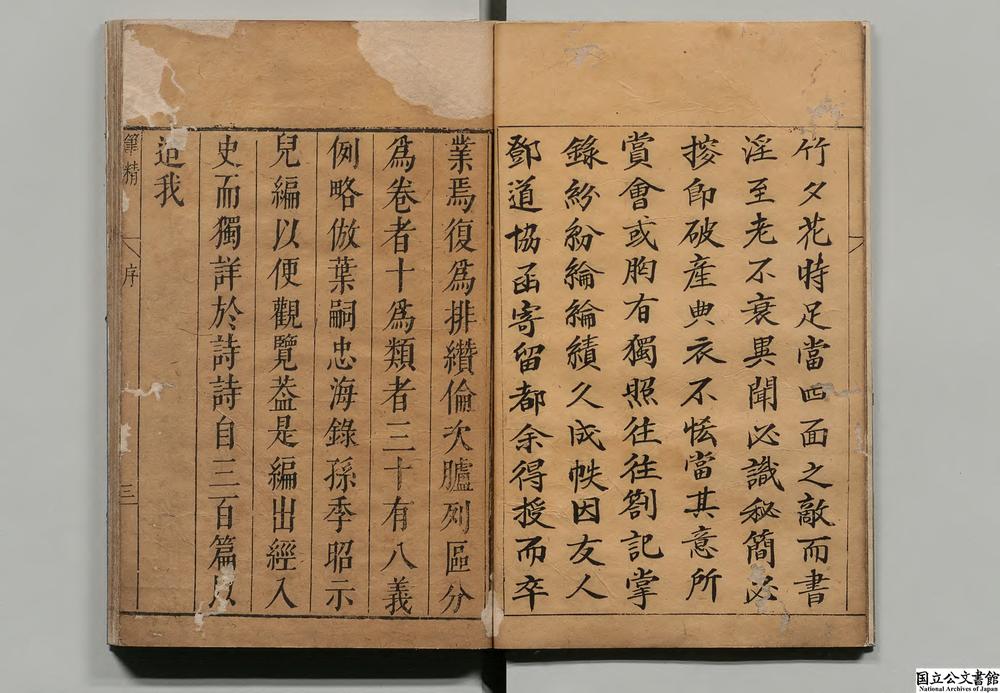 竹夕花時足當四面之敵而書
淫至老不衰異聞必識秘簡必
摉卽破產典衣不恡當其意所
賞會或胸有獨照往往劄記掌
錄紛紛綸綸績久成帙因友人
鄧道協函寄留都余得授而卒
業焉復爲排纘倫次臚列區分
爲卷者十爲類者三十有八義
例略倣葉嗣忠海錄孫季昭示
兒編以便觀覽葢是編出經入
史而獨詳於詩詩自三百篇以
迨我
筆精
序
三
国立公文書館
National Archives of Japan